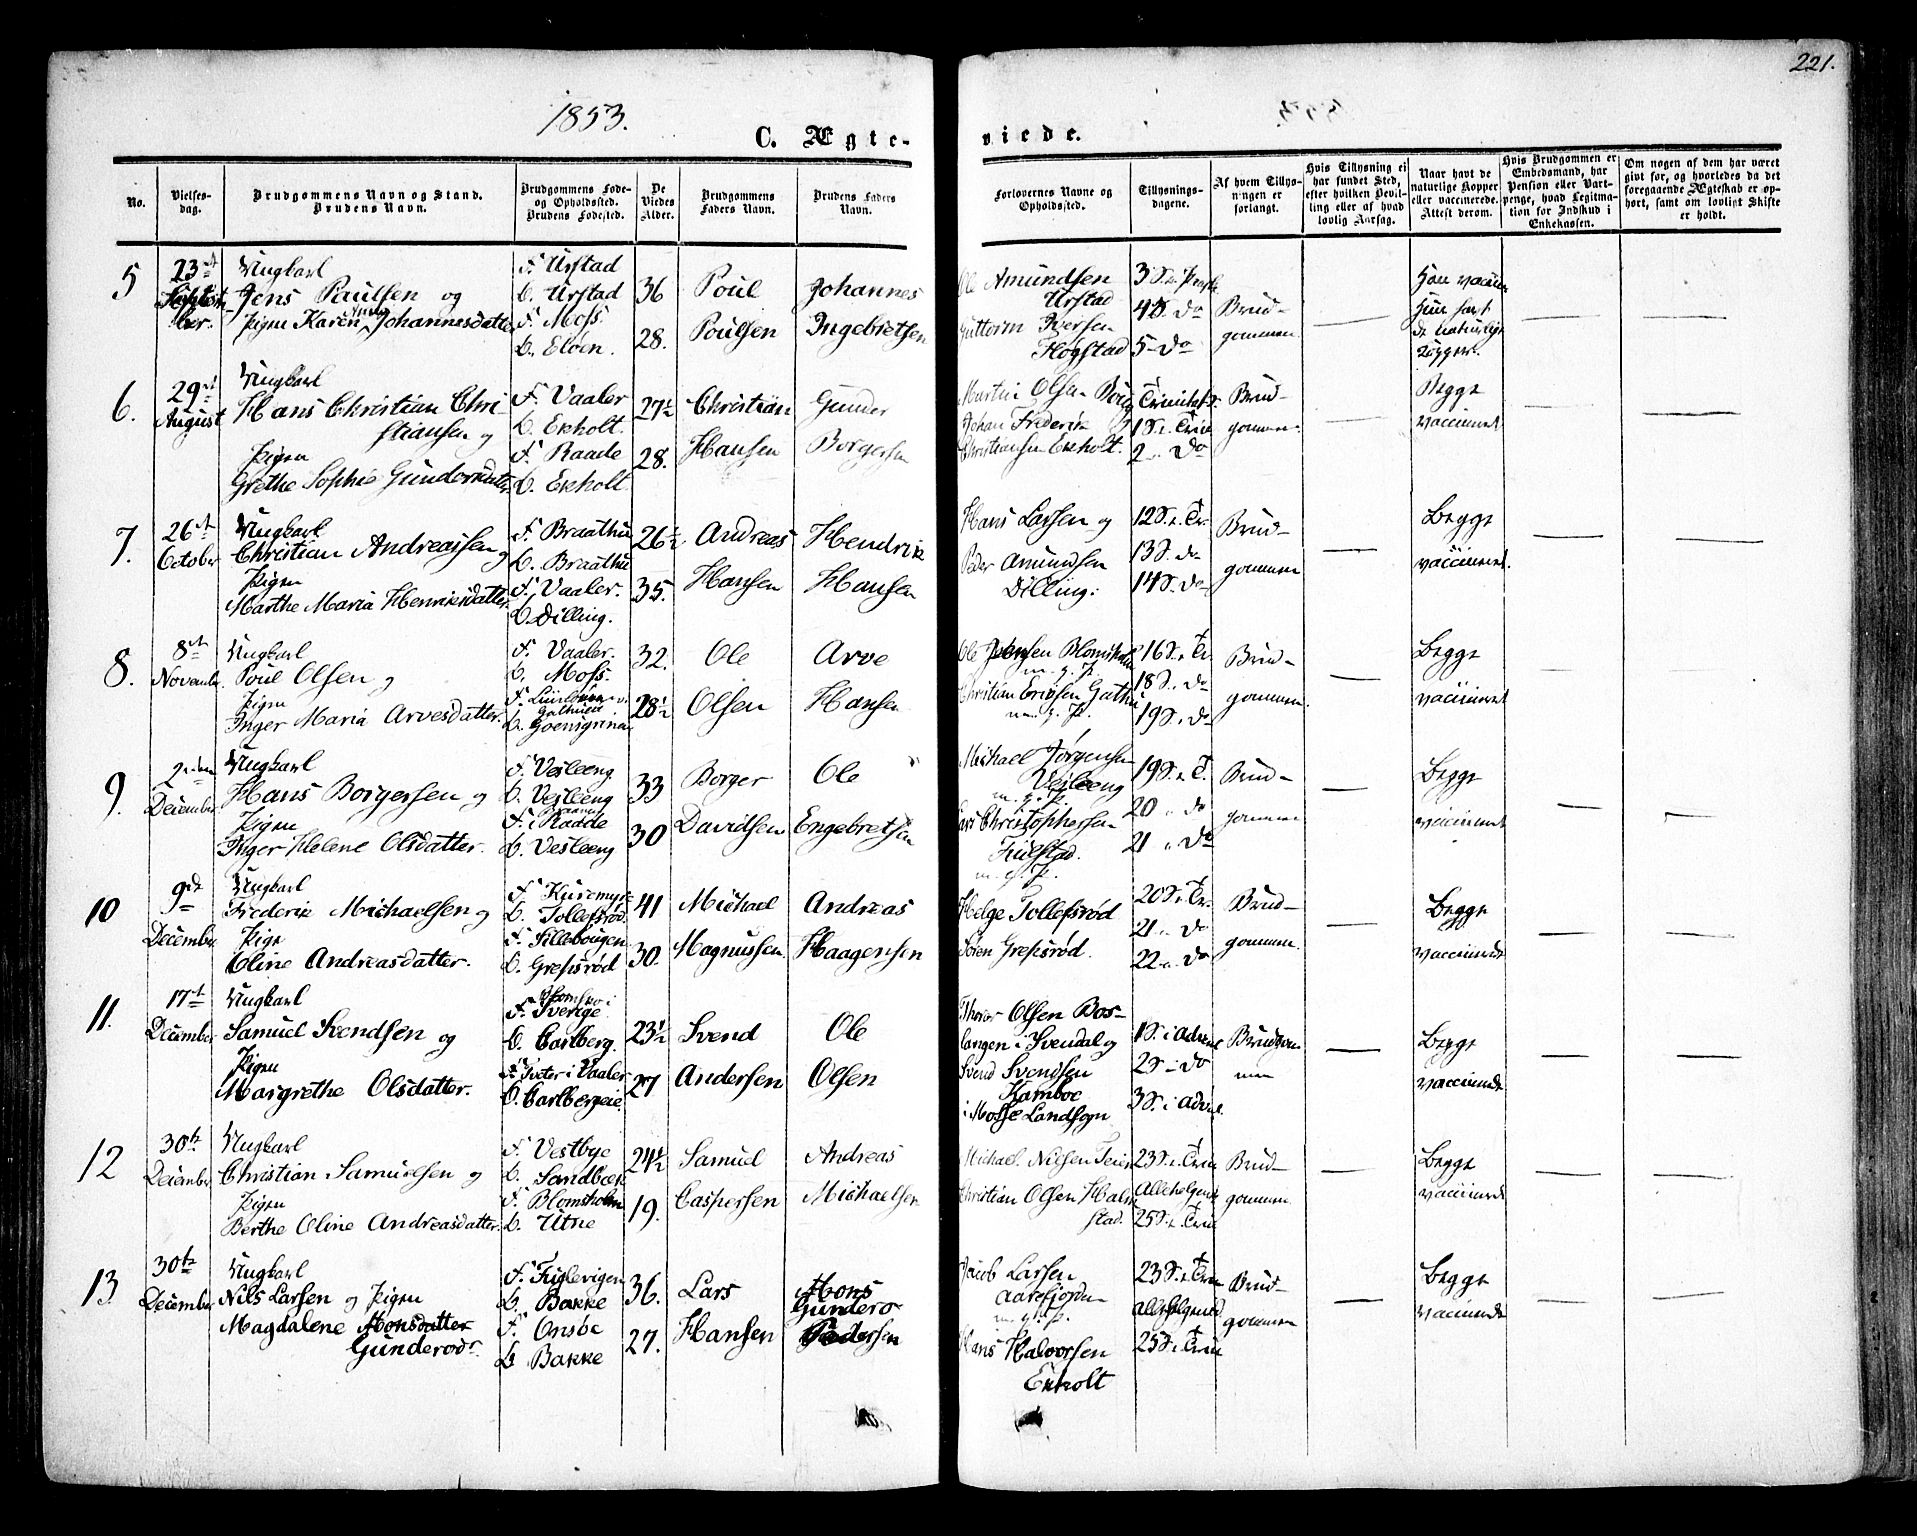 221.
1853.
C. Ægte-
viede.
No.
Vielses-
dag.
Brudgommens Navn og Stand.
Brudens Navn.
Brudgommens Føde-
og Opholdssted.
Brudens Fødested.
De
Viedes
Alder.
Brudgommens
Faders Navn.
Brudens Faders
Navn.
Forlovernes Navne og
Opholdssted.
Tillysnings-
dagene.
Af hvem Tillys-
ningen er
forlangt.
Hvis Tillysning ei
har fundet Sted,
efter hvilken Bevil-
ling eller af hvad
lovlig Aarsag.
Naar havt de
naturlige Kopper
eller vaccinerede.
Attest derom.
Hvis Brudgommen er
Embedsmand, har
Pension eller Vart-
penge, hvad Legitima-
tion for Indskud i
Enkekassen.
Om nogen af dem har været
givt før, og hvorledes da det
foregaaende Ægteskab er op-
hørt, samt om lovligt Skifte
er holdt.
5
23
Ungkarl
Jens Paulsen og
Pigen Karen Johannesdatter
F. Urstad
O. Urstad
F. Moss.
O. Eloen.
36
28.
Poul
Poulsen
Johannes
Ingebretsen
Ole Amundsen
Urstad
Guttorm Iversen
Høgstad
4 S. do
5 - do
Brud-
gommen
6.
29
August
Ungkarl
Hans Christian Chri-
stiansen og
Pigen
Grethe Sophie Gundersdatter
F. Vaaler
O. Ekholt.
F. Raade
O. Ekholt
27½
28.
Christian
Hansen
Gunder
Borgersen
Martin Olsen
Johan Frederik
Christiansen Ekholt.
2 " do
Brud-
gommen.
Begge
vaccineret
7.
26
October
Ungkarl
Christian Andreassen og
Pigen
Marthe Maria Henriksdatter
F. Braathu
O. Braathu
F. Vaaler.
O. Dilling.
26½
35.
Andreas
Hansen
Hendrik
Hansen
Hans Larsen og
Peder Amundsen
Dilling.
12 S. e. Tr.
13 S. do
14 S. do
Brud-
gommen
Begge
vaccineret.
8.
8
November
Ungkarl
Poul Olsen og
Pigen
Inger Maria Arvesdatter.
F. Vaaler.
O. Moss.
32.
28½
Ole
Olsen
Arve
Hansen
Ole Jensen Blomsholm
m. g. P.
Christian Ericsen Gathu
m. g. P.
16 S. e. Tr.
18 S. do
19 S. do
Brud-
gommen.
Begge
vaccineret
9.
2
December
Ungkarl
Hans Borgersen og
Pigen
Inger Helene Olsdatter.
F. Vesleeng
O. Vesleeng
F. i Raade
O. Vesleeng
33
30
Borger
Davidsen
Ole
Engebretsen
Michael Jørgensen
Vesleeng
m. g. P.
Christophersen
m. g. P.
19 S. e. T.
20 " do
21 " do
Brud-
gommen
Begge
vaccineret
10
9
December
Ungkarl
Frederik Michaelsen og
Pige
Oline Andreasdatter.
F. Kuremyr
O. Tollefsrød
F. Sillebougen
O. Grepsrød
41
30.
Michael
Magnussen
Andreas
Haagensen
Helge Tollefsrød
Søren Grepsrød.
20 S. e. Tr.
21 " do
22 " do
Brud-
gommen.
Begge
vaccinerede
11.
17
December
Ungkarl
Samuel Svendsen og
Pigen
Margrethe Olsdatter.
F. Sverige
O. Carlberg.
F. Sveter i Vaaler
O. Carlbergeie.
23½
27
Svend
Andersen
Ole
Olsen
Thorer Olsen Bos-
langen i Svendal og
Svend Svendsen
Kamboe
i Mosse Landsogn
1 S. i Advent
2 S - do
3 S. i Advent
Brudgom-
men
Begge
vaccinerede
12
30
December
Ungkarl
Christian Samuelsen og
Pigen
Berthe Oline Andreasdatter.
F. Vestbye
O. Sandbæk
F. Blomsholm
O. Utne
24½
19.
Samuel
Caspersen
Andreas
Michaelsen
Michael Nilsen Teien
Christian Olsen Halm-
stad.
23 S. e. Trin
Allehelgensd
25 S. e. Trin
Brud-
gommen.
Begge
vaccinerede
13.
30
December
Ungkarl
Nils Larsen og Pigen
Magdalene Monsdatter
Gundersdr.
F. Fuglevigen
O. Bakke
F. Onsøe
O. Bakke
36.
27.
Lars
Hansen
Mons
Gundero
Pedersen
Jacob Larsen
Aarefjorden
m. g. P.
Hans Halvorsen
Ekholt
23 S. e. Trin
Allehelgensd
25 S. e. Trin
Brud-
gommen
Begge
vaccinerede